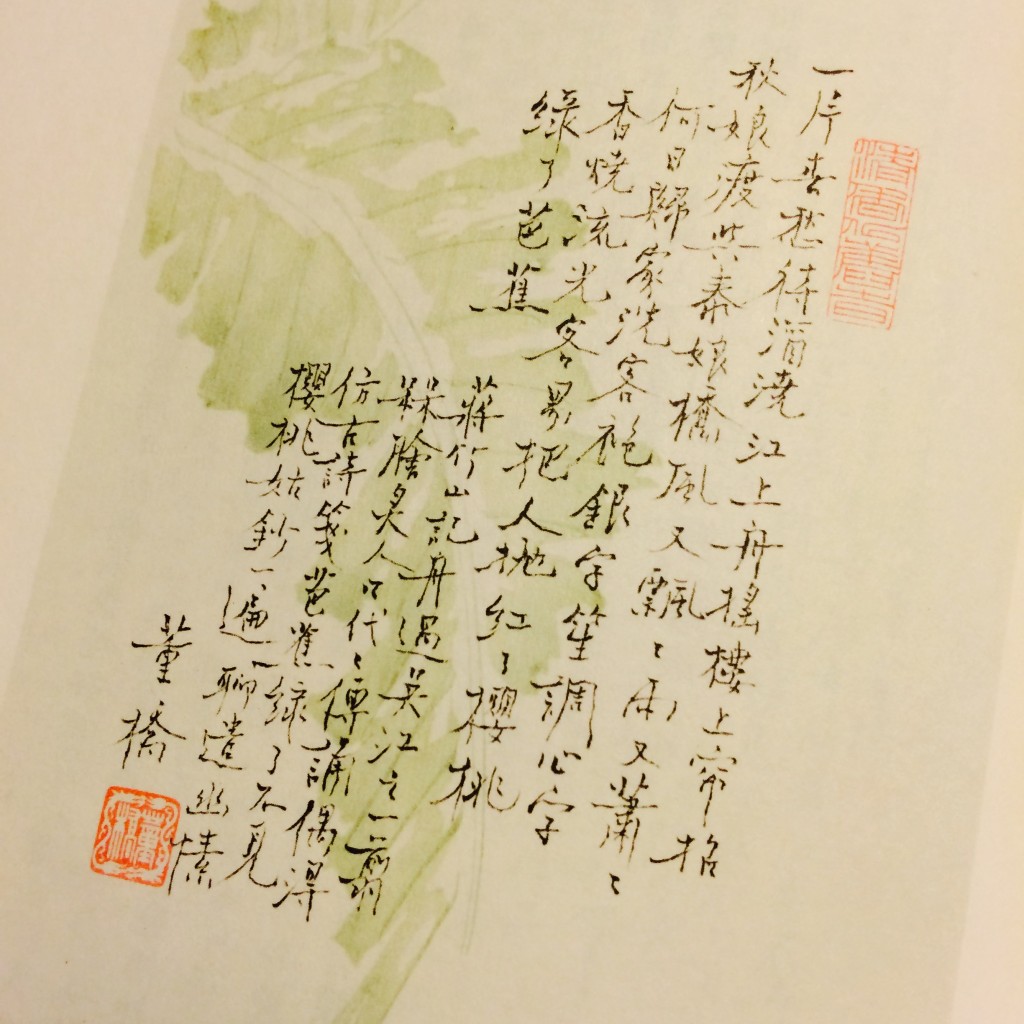 一片春愁待酒澆江上舟搖樓上帘招
秋娘渡與泰娘橋風又飄〻雨又蕭〻
何日歸家洗客袍銀字笙調心字
香燒流光容易把人拋紅了櫻桃
綠了芭蕉
蔣竹山記舟過吳江之一翦
槑膾炙人口代〻傳誦偶得
仿古詩箋芭蕉綠了不見
櫻桃姑鈔一遍聊遣幽愫
董橋